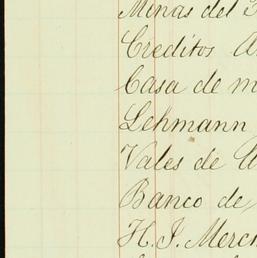 Minas del
Creditos
Casa de
Lehmann
Vales de
Banco de
H. J. Merc